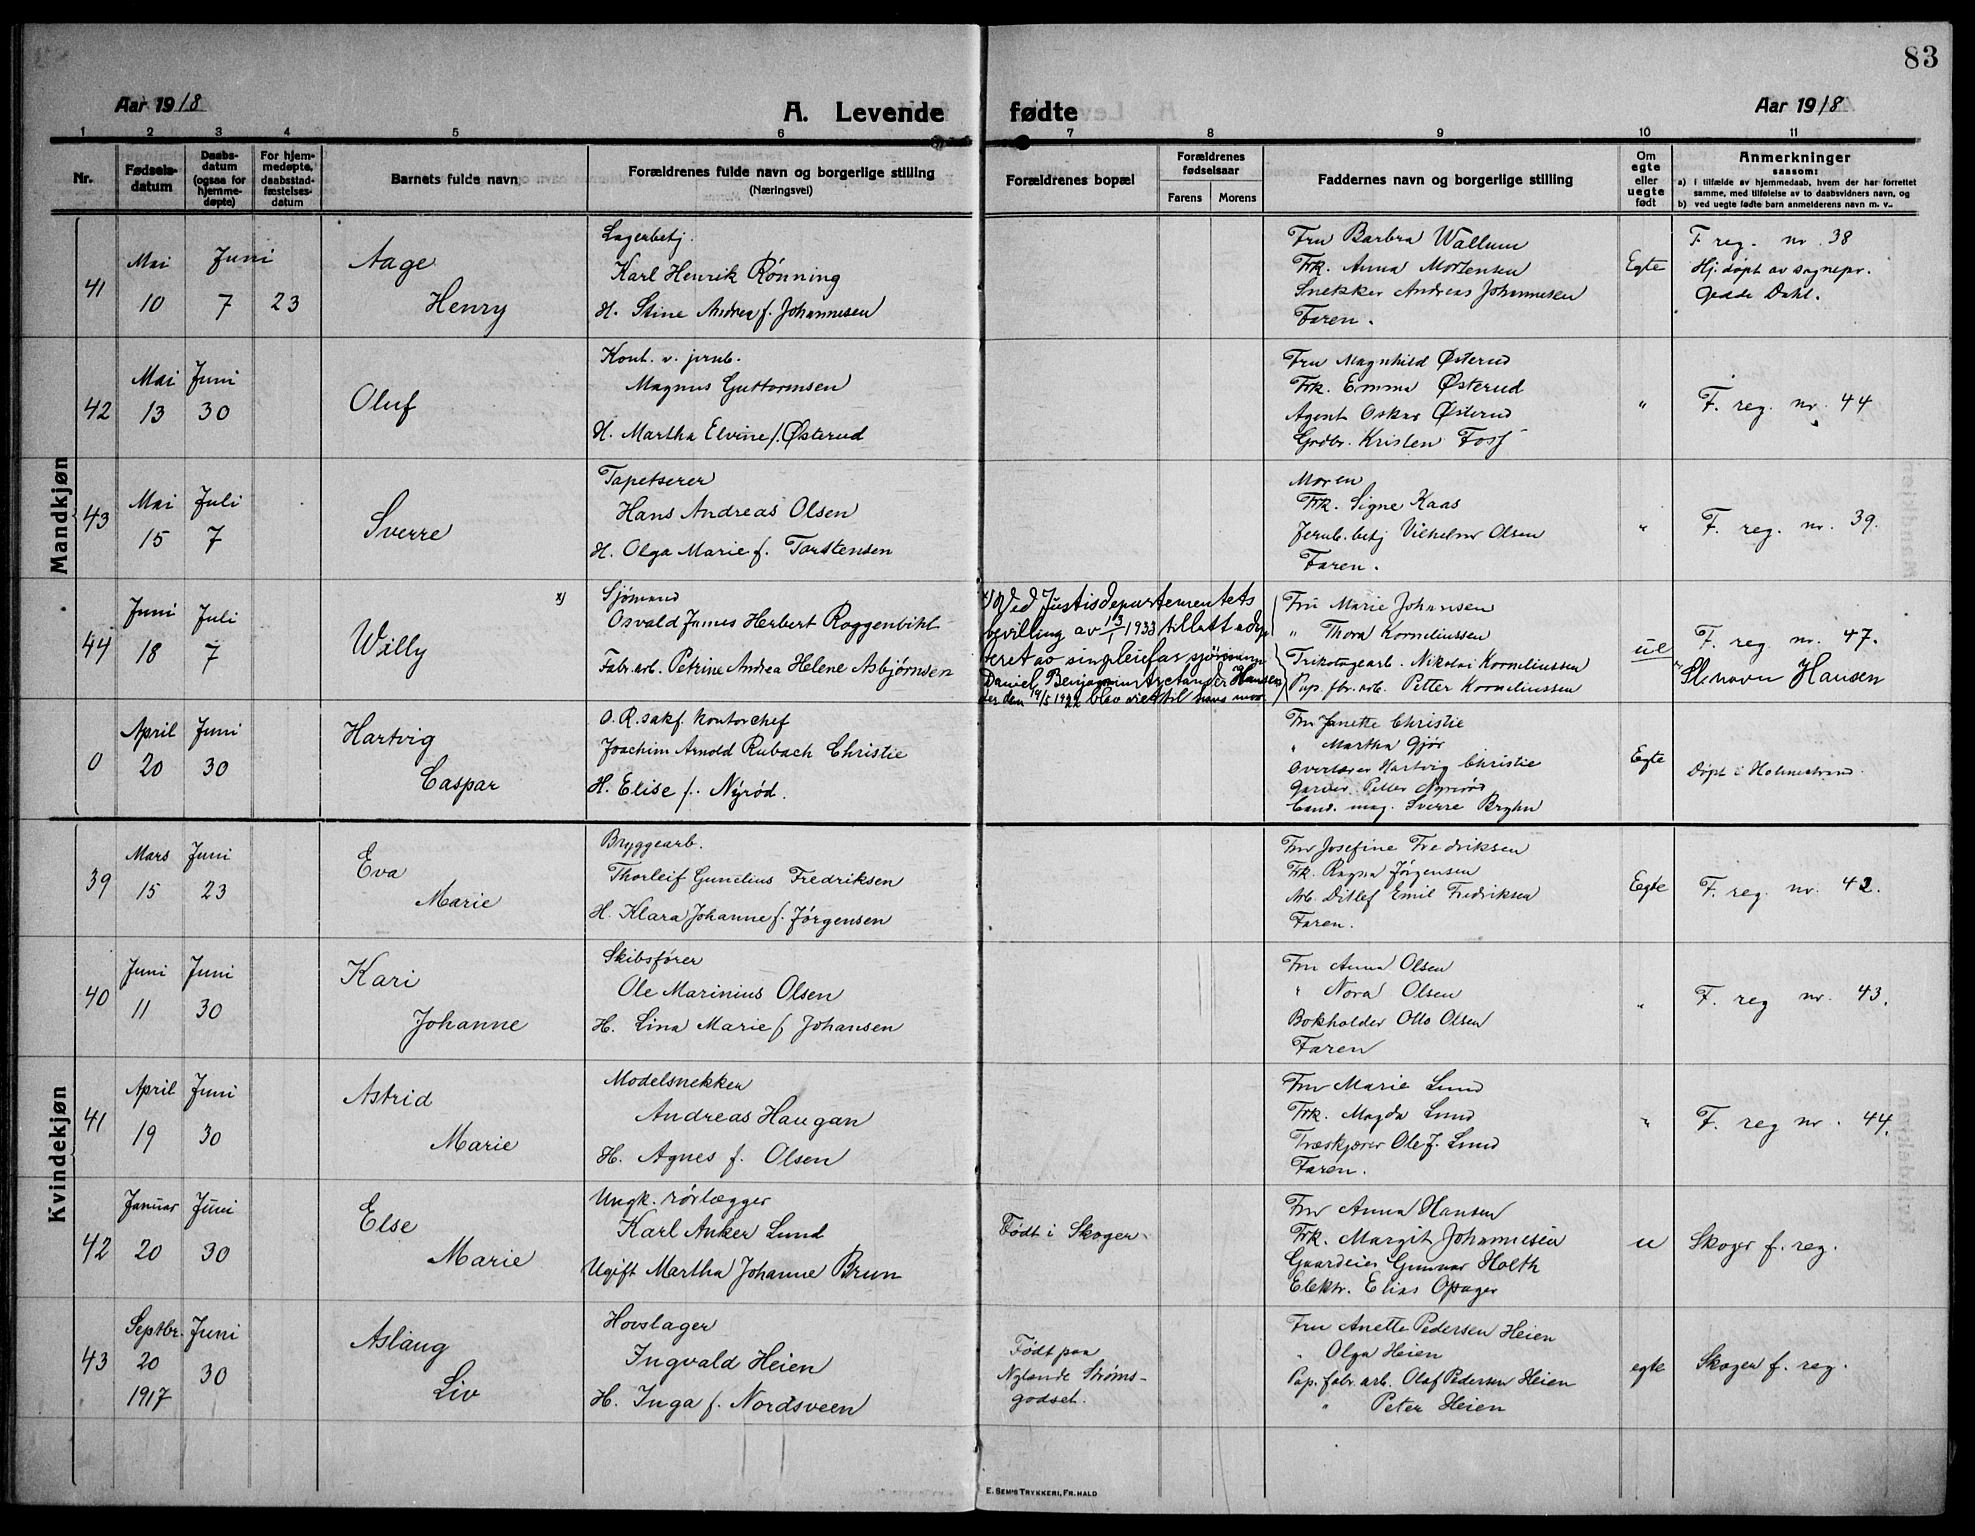 83
Aar 1918
A. Levende fødte
Aar 1918
1 2 3 4 5 6 7 8 9 10 11
Nr.
Fødsels-
datum
Daabs-
datum
(ogsaa for
hjemme-
døpte)
For hjem-
medøpte,
daabsstad-
fæstelses-
datum
Barnets fulde navn
Forældrenes fulde navn og borgerlige stilling
(Næringsvei)
Forældrenes bopæl
Forældrenes
fødselsaar
Farens Morens
Faddernes navn og borgerlige stilling
Om
egte
eller
uegte
født
Anmerkninger
saasom:
a) i tilfælde av hjemmedaab, hvem der har forrettet
samme, med tilføielse av to daabsvidners navn, og
b) ved uegte fødte barn anmelderens navn m. v.
Mandkjøn
41
Mai
10
Juni
7 23
Aage
Henry
Lagerbetj.
Karl Henrik Rønning
H. Stine Andrea f. Johannesen
Fru Barbra Wallum
Frk. Anna Mortensen
Snekker Andreas Johannesen
Faren.
Egte
F. reg. nr. 38
Hj. døpt av sognepr.
Gedde Dahl.
42
Mai
13
Juni
30
Oluf
Kont. v. jernb.
Magnus Guttormsen
H. Martha Elvine f. Østerud
Fru Magnhild Østerud
Frk. Emma Østerud
Agent Oskar Østerud
Grdbr. Kristen Foss
"
F. reg. nr. 44
43
Mai
15
Juli
7
Sverre
Tapetserer
Hans Andreas Olsen
H. Olga Marie f. Torstensen
Moren
Frk. Signe Kaas
Jernb. betj Vilhelm Olsen
Faren.
"
F. reg. nr. 39.
44
Juni
18
Juli
7
Willy
x)
Sjømand
Osvald James Herbert Roggenbihl
Fabr. arb. Petrine Andrea Helene Asbjørnsen
x) Ved Justisdepartementets
bevilling av 13/1 1933 tillatt adop
teret av sin pleiefar sjømann
Daniel Benjamin Hansen
den 14/5 1922 blev viet til hans mor
Fru Marie Johansen
" Thora Korneliussen
Trikotagearb. Nikolai Korneliussen
Pap. fbr. arb. Petter Korneliussen
ue
F. reg nr. 47.
Sl. navn Hansen
0
April
20
Juni
30
Hartvig
Caspar
O. R. sakf. kontorchef
Joachim Arnold Rubach Christie
H. Elise f. Nyrød.
Fru Janette Christie
" Martha Gjør
Overlærer Hartvig Christie
Garver Petter Nyrød
Cand. mag. Sverre Bryhn
Egte
Døpt i Holmestrand.
Kvindekjøn
39
Mars
15
Juni
23
Eva
Marie
Bryggearb.
Thorleif Gunelius Fredriksen
H. Klara Johanne f. Jørgensen
Fru Josefine Fredriksen
Frk. Ragna Jørgensen
Arb. Ditlef Emil Fredriksen
Faren.
Egte
F. reg. nr. 42.
40
Juni
11
Juni
30
Kari
Johanne
Skibsfører
Ole Marinius Olsen
H. Lina Marie f. Johansen
Fru Anna Olsen
" Nora Olsen
Bokholder Otto Olsen
Faren
"
F. reg nr. 43.
41
April
19
Juni
30
Astrid
Marie
Modelsnekker
Andreas Haugan
H. Agnes f. Olsen
Fru Marie Lund
Frk. Magda Lund
Træskjærer Ole J. Lund
Faren.
"
F. reg nr. 44.
42
Januar
20
Juni
30
Else
Marie
Ungk. rørlægger
Karl Anker Lund
Ugift Martha Johanne Brun
Født i Skoger.
Fru Anna Hansen
Frk. Margit Johannesen
Gaardeier Gunnar Holth
Elektr. Elias Opsager
u
Skoger f. reg.
43
Septbr.
20
1917
Juni
30
Aslaug
Liv
Hovslager
Ingvald Heien
H. Inga f. Nordsveen
Født paa
Nylande Strøms-
godset.
Fru Anette Pedersen Heien
" Olga Heien
Pap. fabr. arb. Olaf Pedersen Heien
" Peter Heien
egte
Skoger f. reg.
E. SEM'S TRYKKERI, FR.HALD